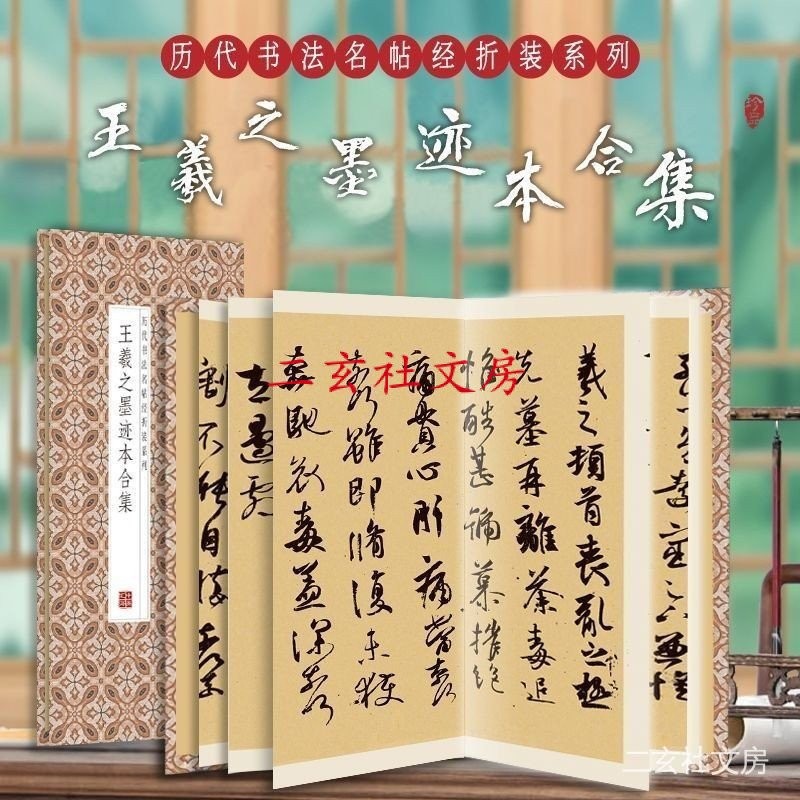 历代书法名帖经折装系列
王羲之墨迹本合集
历代书法名帖经折装系列
王羲之墨迹本合集
羲之頓首喪亂之極
先墓再離荼毒追
惟酷甚號慕摧絕
痛貫心肝痛當奈何
奈何雖即脩復未獲
奔馳哀毒益深奈何
割不能自勝奈何
二玄社文房
二玄社文房